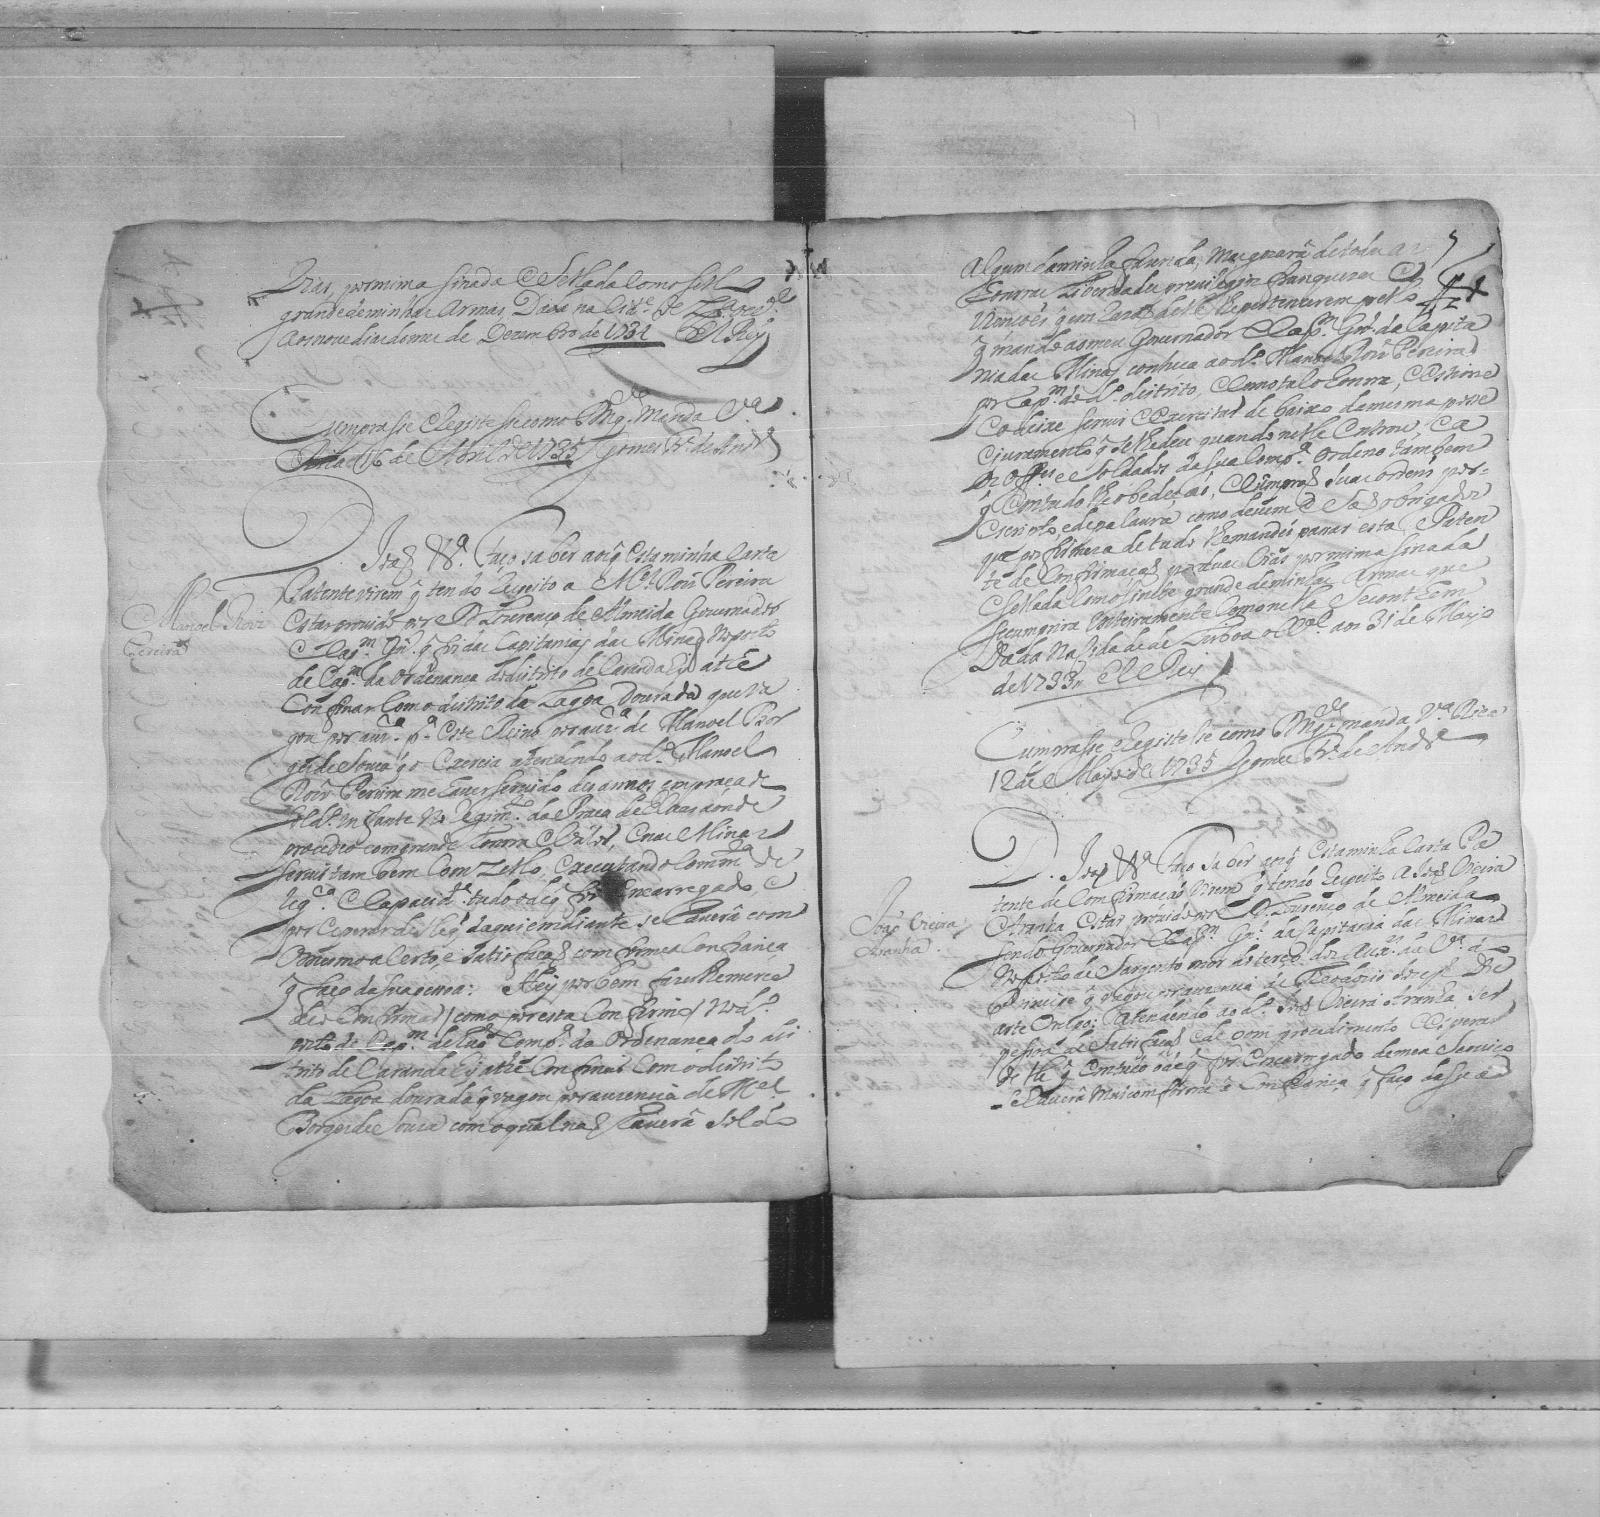 Vias, por mim asinada e Sellada Com o Sello
grande de minhas Armas, Dada na Cid.e de Lx.a occ.al
Aos nove dias do mes de Dezembro de 1732 ElRey
Cumprasse e Registesse como S Mg.de Manda V.a
Rica 16 de Abril de 1735 Gomes Fr.e de Andr.a
Manoel Roiz
Pereira
D. João &.a Faço saber aos q̃ esta minha Carta
Patente virem q̃ tendo Respeito a M.el Roiz Pereira
Estar provido por D. Lourenço de Almeida Governador
e Cap.m Gn.l q̃ foi das Capitanias das Minas no posto
de Cap.m da Ordenança do distrito de Carandahy athe
Confinar Com o distrito da Lagoa Dourada que va
gou por auz.a p.a este Reino por auz.a de Manoel Bor
ges de Souza q̃ o Exercia atendendo ao d.o Manoel
Roiz Pereira me haver servido des annos em praça de
sold.o Infante no Regim.to da Praça de Elvas donde
procedeo com grande honra e, e nas Minas
servir tambem Com Zello, executando Com m.ta
e Capacid.e tudo o de q̃ foi encarregado, e
por esperar delle q̃ daqui em diante se havera com
o mesmo acerto, e satisfação conforme a Confiança
q̃ faço da sua pessoa: Hey por bem fazerlhe merce
de o Confirmar como por esta Confirmo no d.o
posto de Cap.m de hua Comp.a da Ordenança do dis
trito de Carandahy athe Confinar Com o distrito
da Lagoa dourada q̃ vagou por auzencia de M.el
Borges de Souza com o qual não havera Soldo
5
Algum da minha fazenda, Mas gozará de todas as
Honras Liberdades previlegios franquezas e
q̃ em razão delle lhe pertencerem pello
q̃ mando ao meu Governador e Cap.m Gn.l da Capita
nia das Minas conheça ao d.o Manoel Roiz Pereira
por Cap.m do d.o distrito, e Como tal o honre, e Estime
e o deixe servir e Exercitar de baixo da mesma posse
e juramento q̃ se lhe deu quando nelle Entrou, e a
os off.es e Soldados da sua Comp.a ordeno tambem
q̃ em tudo lhe obedeção, e Cumprão suas ordens por
escrito, e de palavra como devem e São obrigados
que por firmeza de tudo lhe mandei passar esta Paten
te de Confirmação por duas Vias por mim asinada
e Sellada Com o Sello grande de minhas Armas que
se cumprira inteiramente Como nella se contem
Dada na Cidade de Lisboa occ.al aos 31 de Mayo
de 1733 ElRey
Cumprasse e Registesse como S Mg.de manda V.a Rica
12 de Mayo de 1735 Gomes Fr.e de Andr.a
João Vieira
Aranha.
D. João &.a Faço saber aos q̃ Esta minha Carta Pa
tente de Confirmação Virem q̃ tendo Respeito a João Vieira
Aranha Estar provido por D. Lourenço de Almeida
sendo Governador e Cap.m Gn.l da Capitania das Minas
no posto de Sargento mor do terço dos Aux.es da V.a do
Principe q̃ vagou por auzencia de
Atendendo ao d.o João Vieira Aranha ser
pessoa de Satisfação e de bom procedimento e Esperar
delle q̃ em tudo o de q̃ for Encarregado de meu Serviço
se havera mui conforme a Confiança q̃ faço da sua